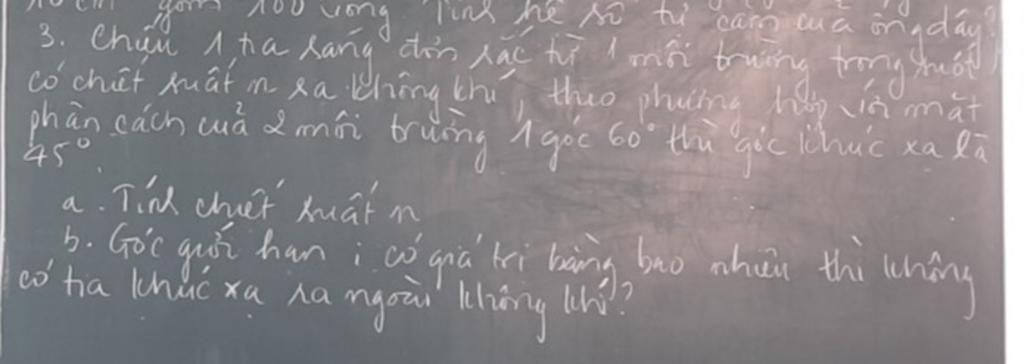 10 cm gồm 100 vòng Tính hệ số tự cảm của ống dây?
3. Chiếu 1 tia sáng đơn sắc từ 1 môi trường trong suốt
có chiết suất n ra không khí, theo phương hợp với mặt
phân cách của 2 môi trường 1 góc 60° thì góc khúc xạ là
45°.
a. Tính chiết suất n
b. Góc giới hạn i có giá trị bằng bao nhiêu thì không
có tia khúc xạ ra ngoài không khí?